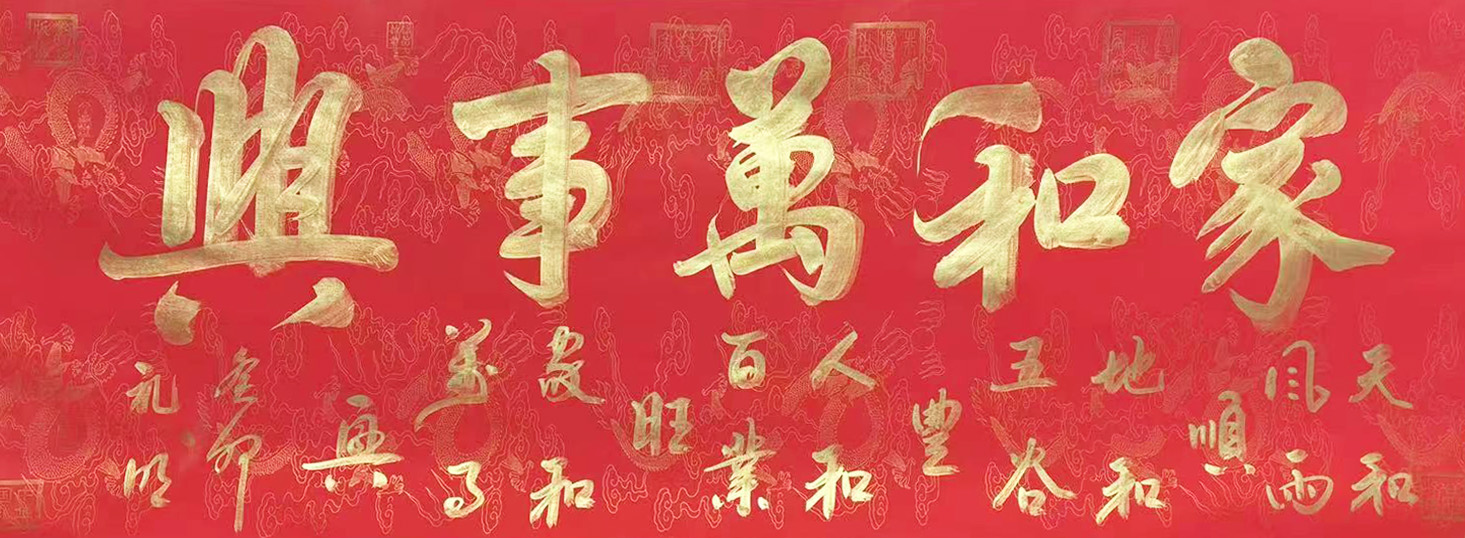 家和萬事興
天和
風雨
順
地和
五谷
豐
人和
百業
旺
家和
萬事
興
癸卯
礼明